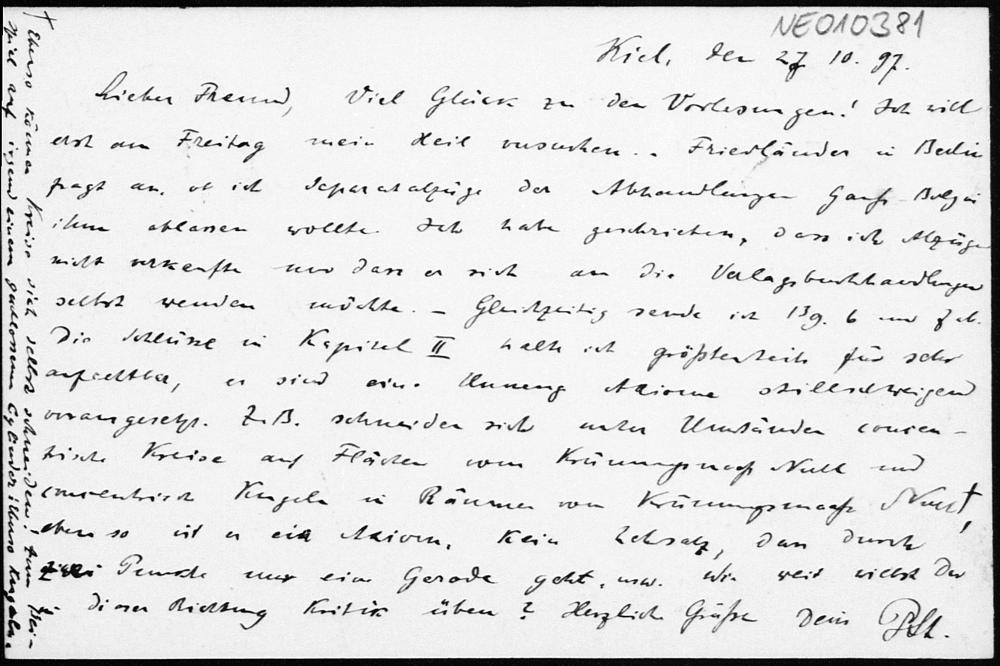 NE010381
Kiel, den 27 10. 97.
Lieber Freund, Viel Glück zu den Vorlesungen! Ich will
erst am Freitag mein Heil versuchen. – Friedländer in Berlin
fragt an, ob ich Separatabzüge der Abhandlungen Gauß-Bolyai
ihm ablassen wollte. Ich habe geschrieben, dass ich Abzüge
nicht verkaufte und dass er sich an die Verlagsbuchhandlungen
selbst wenden möchte. – Gleichzeitig sende ich Bg. 6 und
Die Schlüsse in Kapitel II halte ich größtenteils für sehr
anfechtbar, es sind eine Unmeng Axiome stillschweigend
vorausgesetzt. Z.B. schneiden sich unter Umständen concen-
trische Kreise auf Flächen vom Krümmungsmaaß Null und
concentrische Kugeln in Räumen vom Krümmungsmaaß Null†,
ebenso ist es ein Axiom, kein Lehrsatz, dass durch
zwei Punkte nur eine Gerade geht, usw. Wie weit willst Du
in dieser Richtung Kritik üben? Herzliche Grüße Dein PSt.
† Ebenso können Kreise sich selbst schneiden! Zum Bei-
spiel auf irgend einem Cylinder. Ebenso Kugeln.